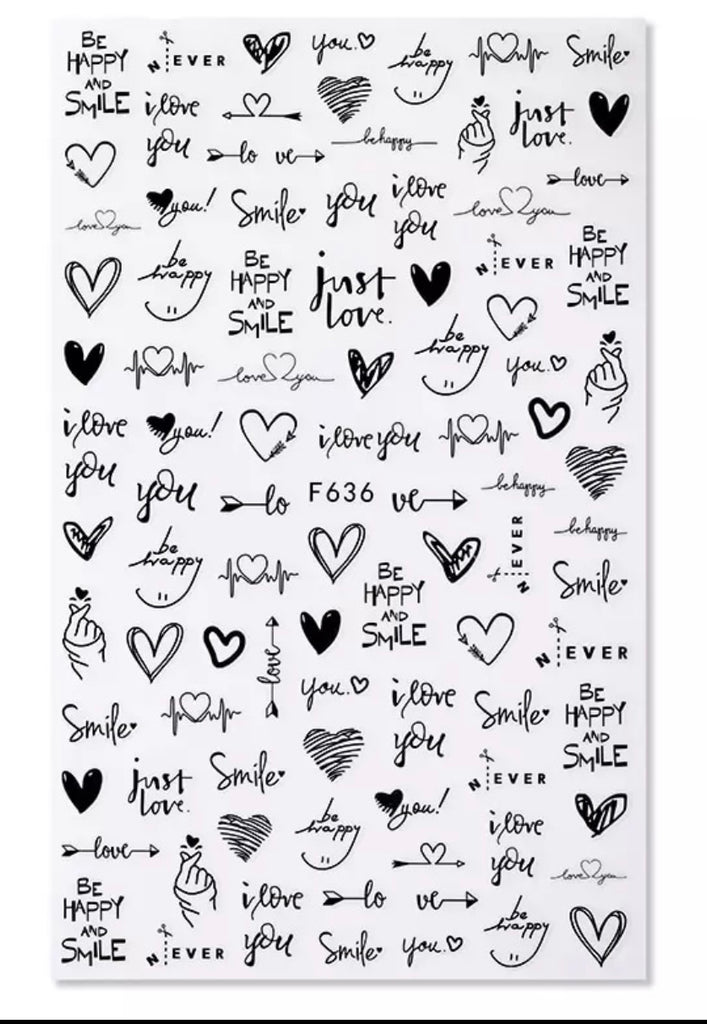 BE
HAPPY
AND
SMILE
N EVER
you.
be
happy
Smile
i love
you
lo ve
be happy
just
love.
love
love you
you!
Smile
you
i love
you
love you
be
happy
BE
HAPPY
AND
SMILE
just
love.
N EVER
BE
HAPPY
AND
SMILE
love you
be
happy
you.
i love
you
you!
i love you
you
lo F636 ve
be happy
be
happy
BE
HAPPY
AND
SMILE
N EVER
be happy
Smile
love
N EVER
Smile
you.
i love
you
Smile
BE
HAPPY
AND
SMILE
just
love.
Smile
N EVER
be
happy
you!
i love
you
love
love you
BE
HAPPY
AND
SMILE
N EVER
i love
you
lo ve
Smile
you.
be
happy